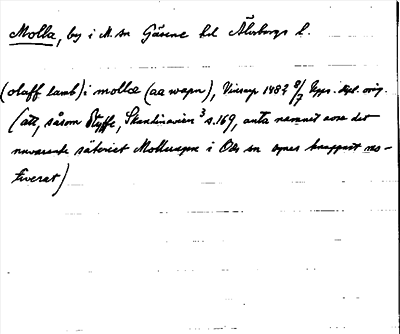 Molla, by i M. sn Gäsene hd Älvsborgs l.
(olaff lamb) i molla (aa wapn), Vinsarp 1483 9/7 Upps. dipl. orig.
(att, såsom Styffe, Skandinavien³ s. 169, anta namnet avse det
nuvarande säteriet Mollungen i Öls sn synes knappast mo-
tiverat)